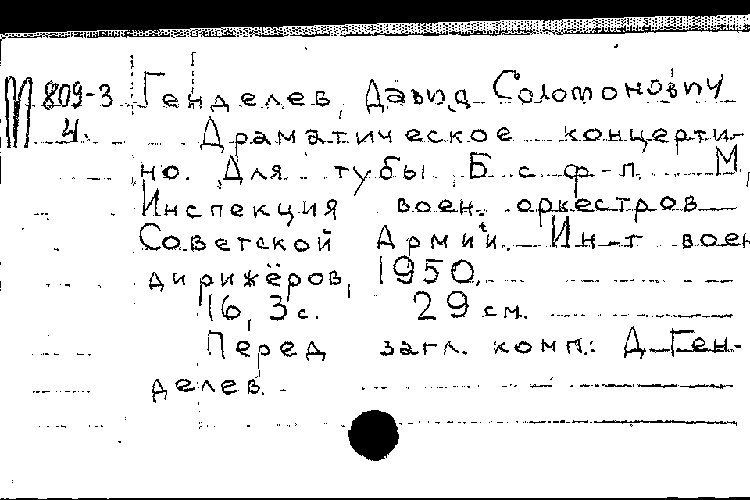 П 809-3 Генделев, Давид Соломонович
4. Драматическое концерти-
но. Для тубы. Б с. ф-п. М,
Инспекция воен. оркестров
Советской Армии. Ин-т воен
дирижёров, 1950.
16, 3 с. 29 см.
Перед загл. комп.: Д. Ген-
делев.